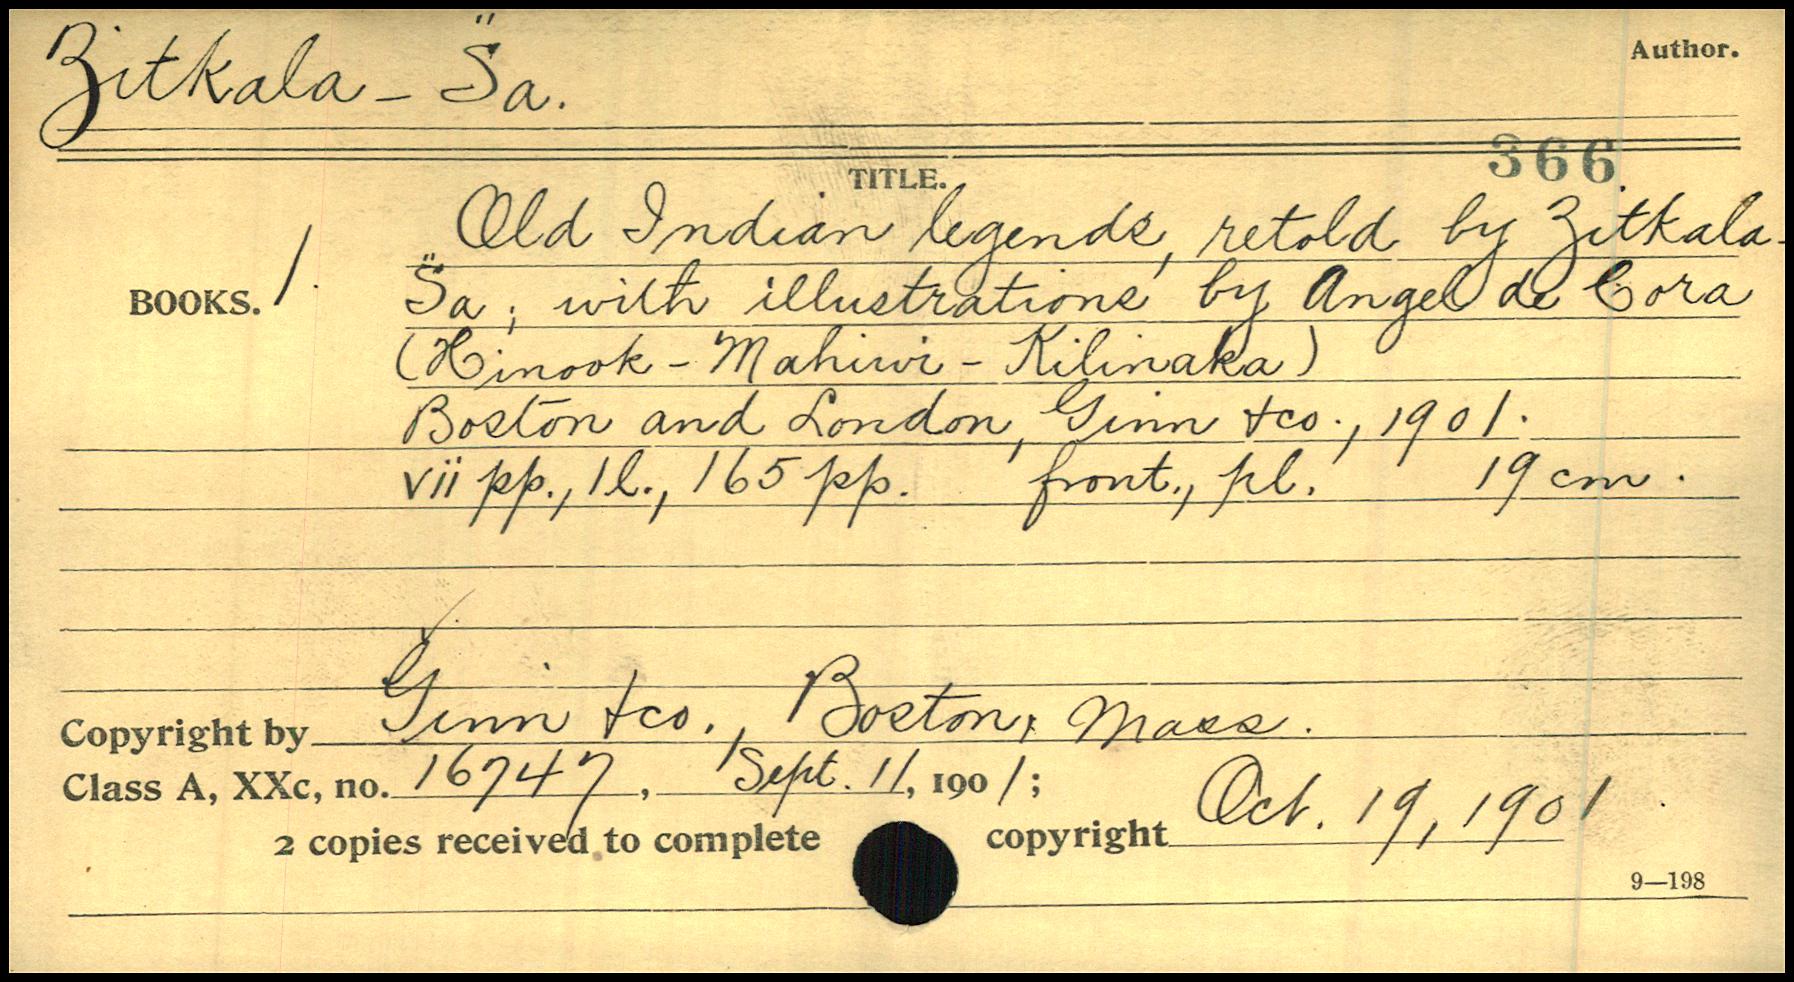 Zitkala-S̈a.
Author.
366
TITLE.
Old Indian legends, retold by Zitkala-
BOOKS. 1.
S̈a; with illustrations by Angel de Cora
(Hinook-Mahiwi-Kilinaka)
Boston and London, Ginn & co., 1901.
vii pp., 1 l., 165 pp. front., pl. 19 cm.
Copyright by Ginn & co., Boston, Mass.
Class A, XXc, no. 16747, Sept. 11, 1901;
2 copies received to complete copyright Oct. 19, 1901.
9—198